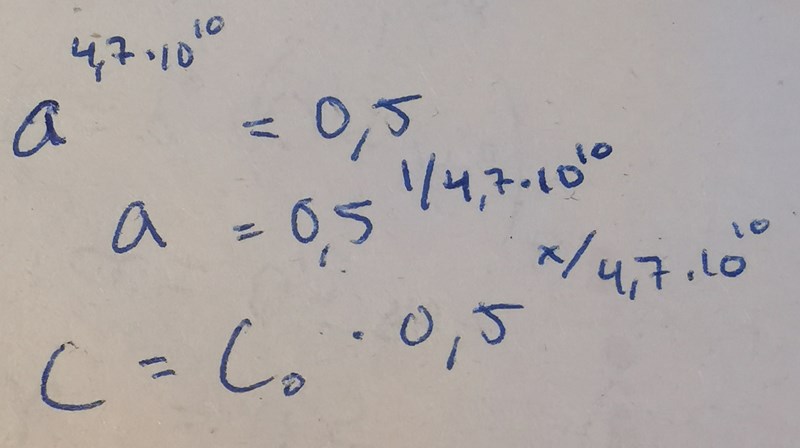 a^4,7·10^10 = 0,5
a = 0,5^1/4,7·10^10
C = C₀ · 0,5^x/4,7·10^10